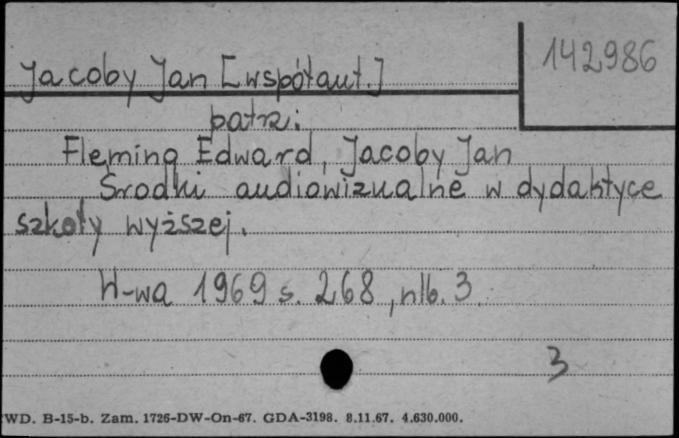 142986
Jacoby Jan [współaut.]
patrz:
Fleming Edward, Jacoby Jan
Środki audiowizualne w dydaktyce
szkoły wyższej.
W-wa 1969 s. 268, nlb. 3
3
WD. B-15-b. Zam. 1726-DW-On-67. GDA-3198. 8.11.67. 4.630.000.